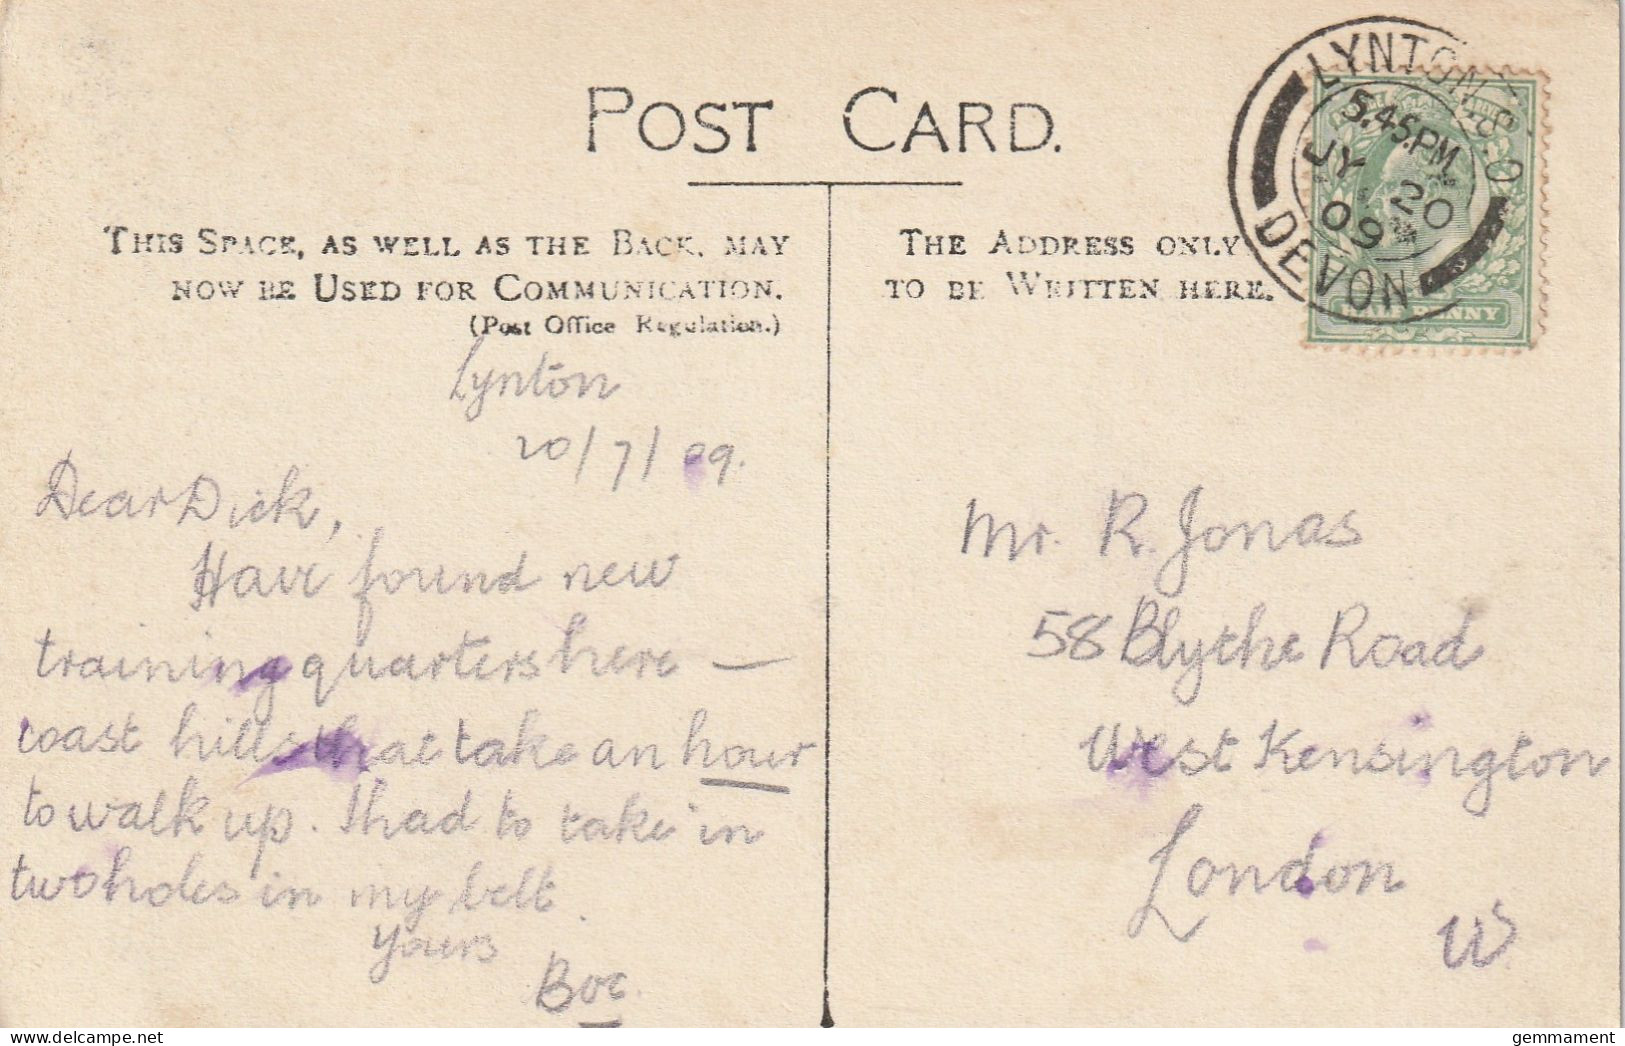 POST CARD.
THIS SPACE, AS WELL AS THE BACK, MAY
NOW BE USED FOR COMMUNICATION.
(Post Office Regulation.)
THE ADDRESS ONLY
TO BE WRITTEN HERE.
LYNTON S.O.
5.45.PM
JY 20
09
DEVON
HALF PENNY
Lynton
20/7/09.
Dear Dick,
Have found new
training quarters here —
coast hills that take an hour
to walk up. I had to take in
two holes in my belt.
Yours
Mr. R. Jonas
58 Blythe Road
West Kensington
London
W
gemmament